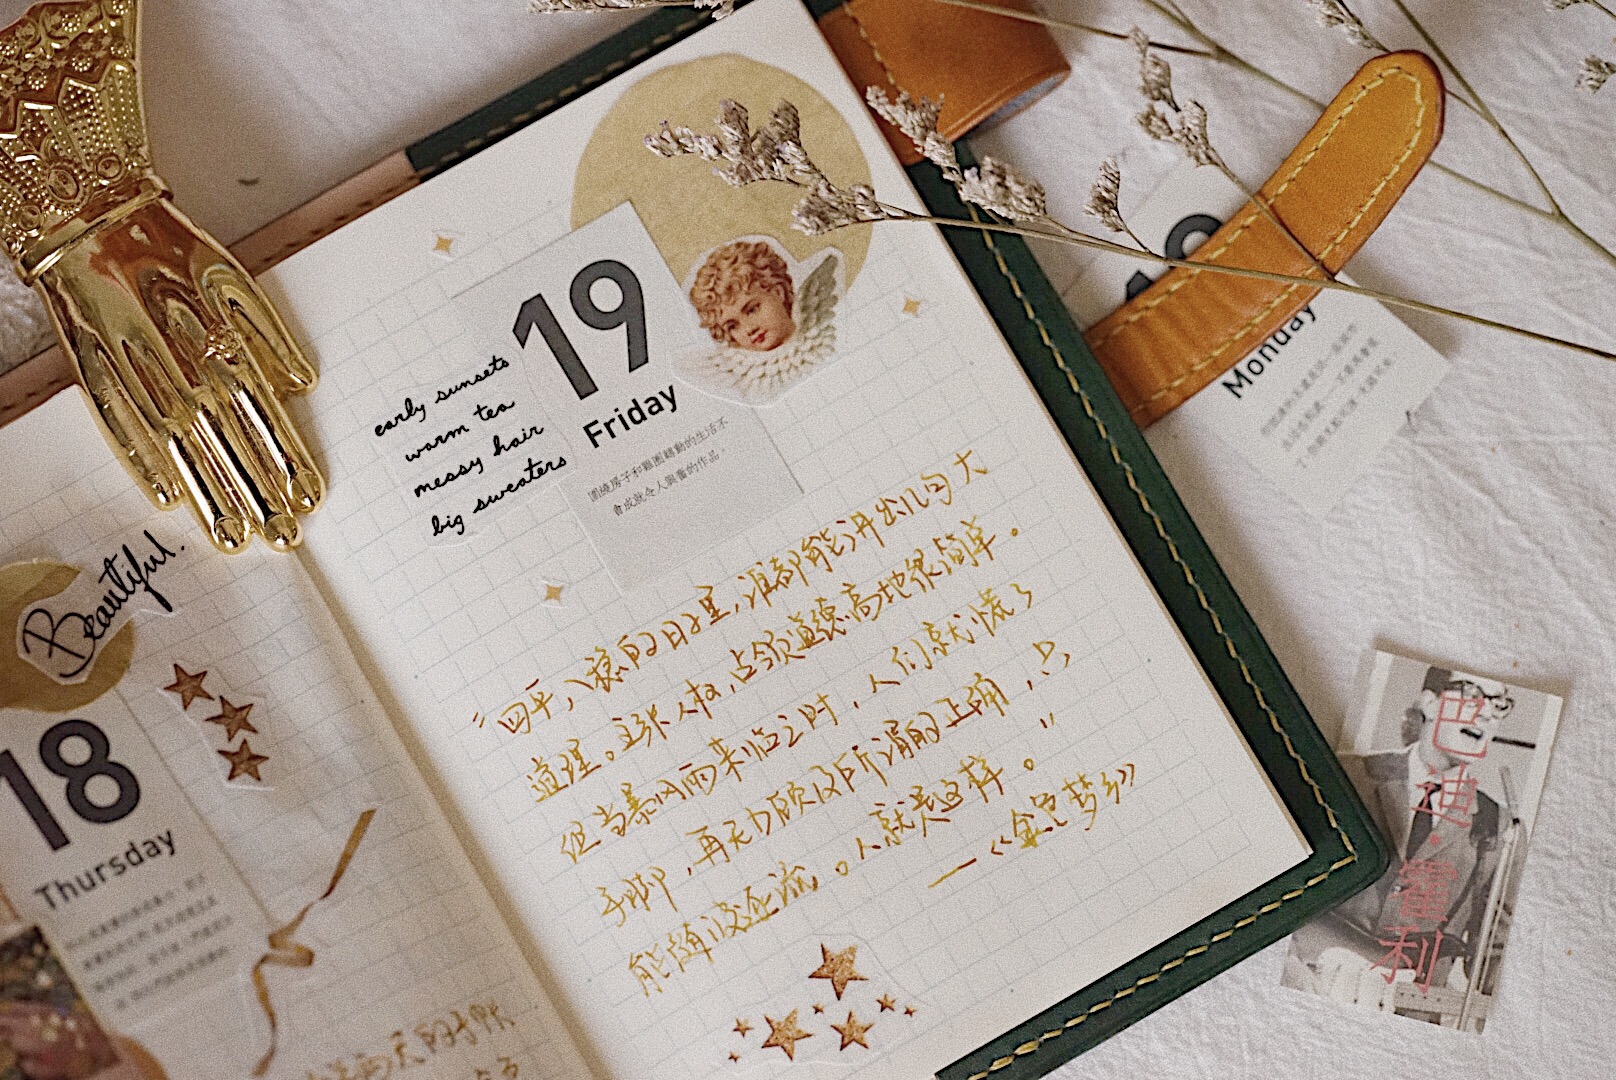 19
Friday
early sunsets
warm tea
messy hair
big sweaters
圍繞房子和雞圈轉動的生活不
會成就令人興奮的作品。
“四平八稳的日子里,谁都能讲出几句大
道理。主张人权,占领道德高地很简单。
但当暴风雨来临之时,人们就慌了
手脚,再无力顾及所谓的正确,只
能随波逐流。人就是这样。”
—《金色梦乡》
Beautiful.
18
Thursday
两天的手帐
Monday
巴迪·霍利